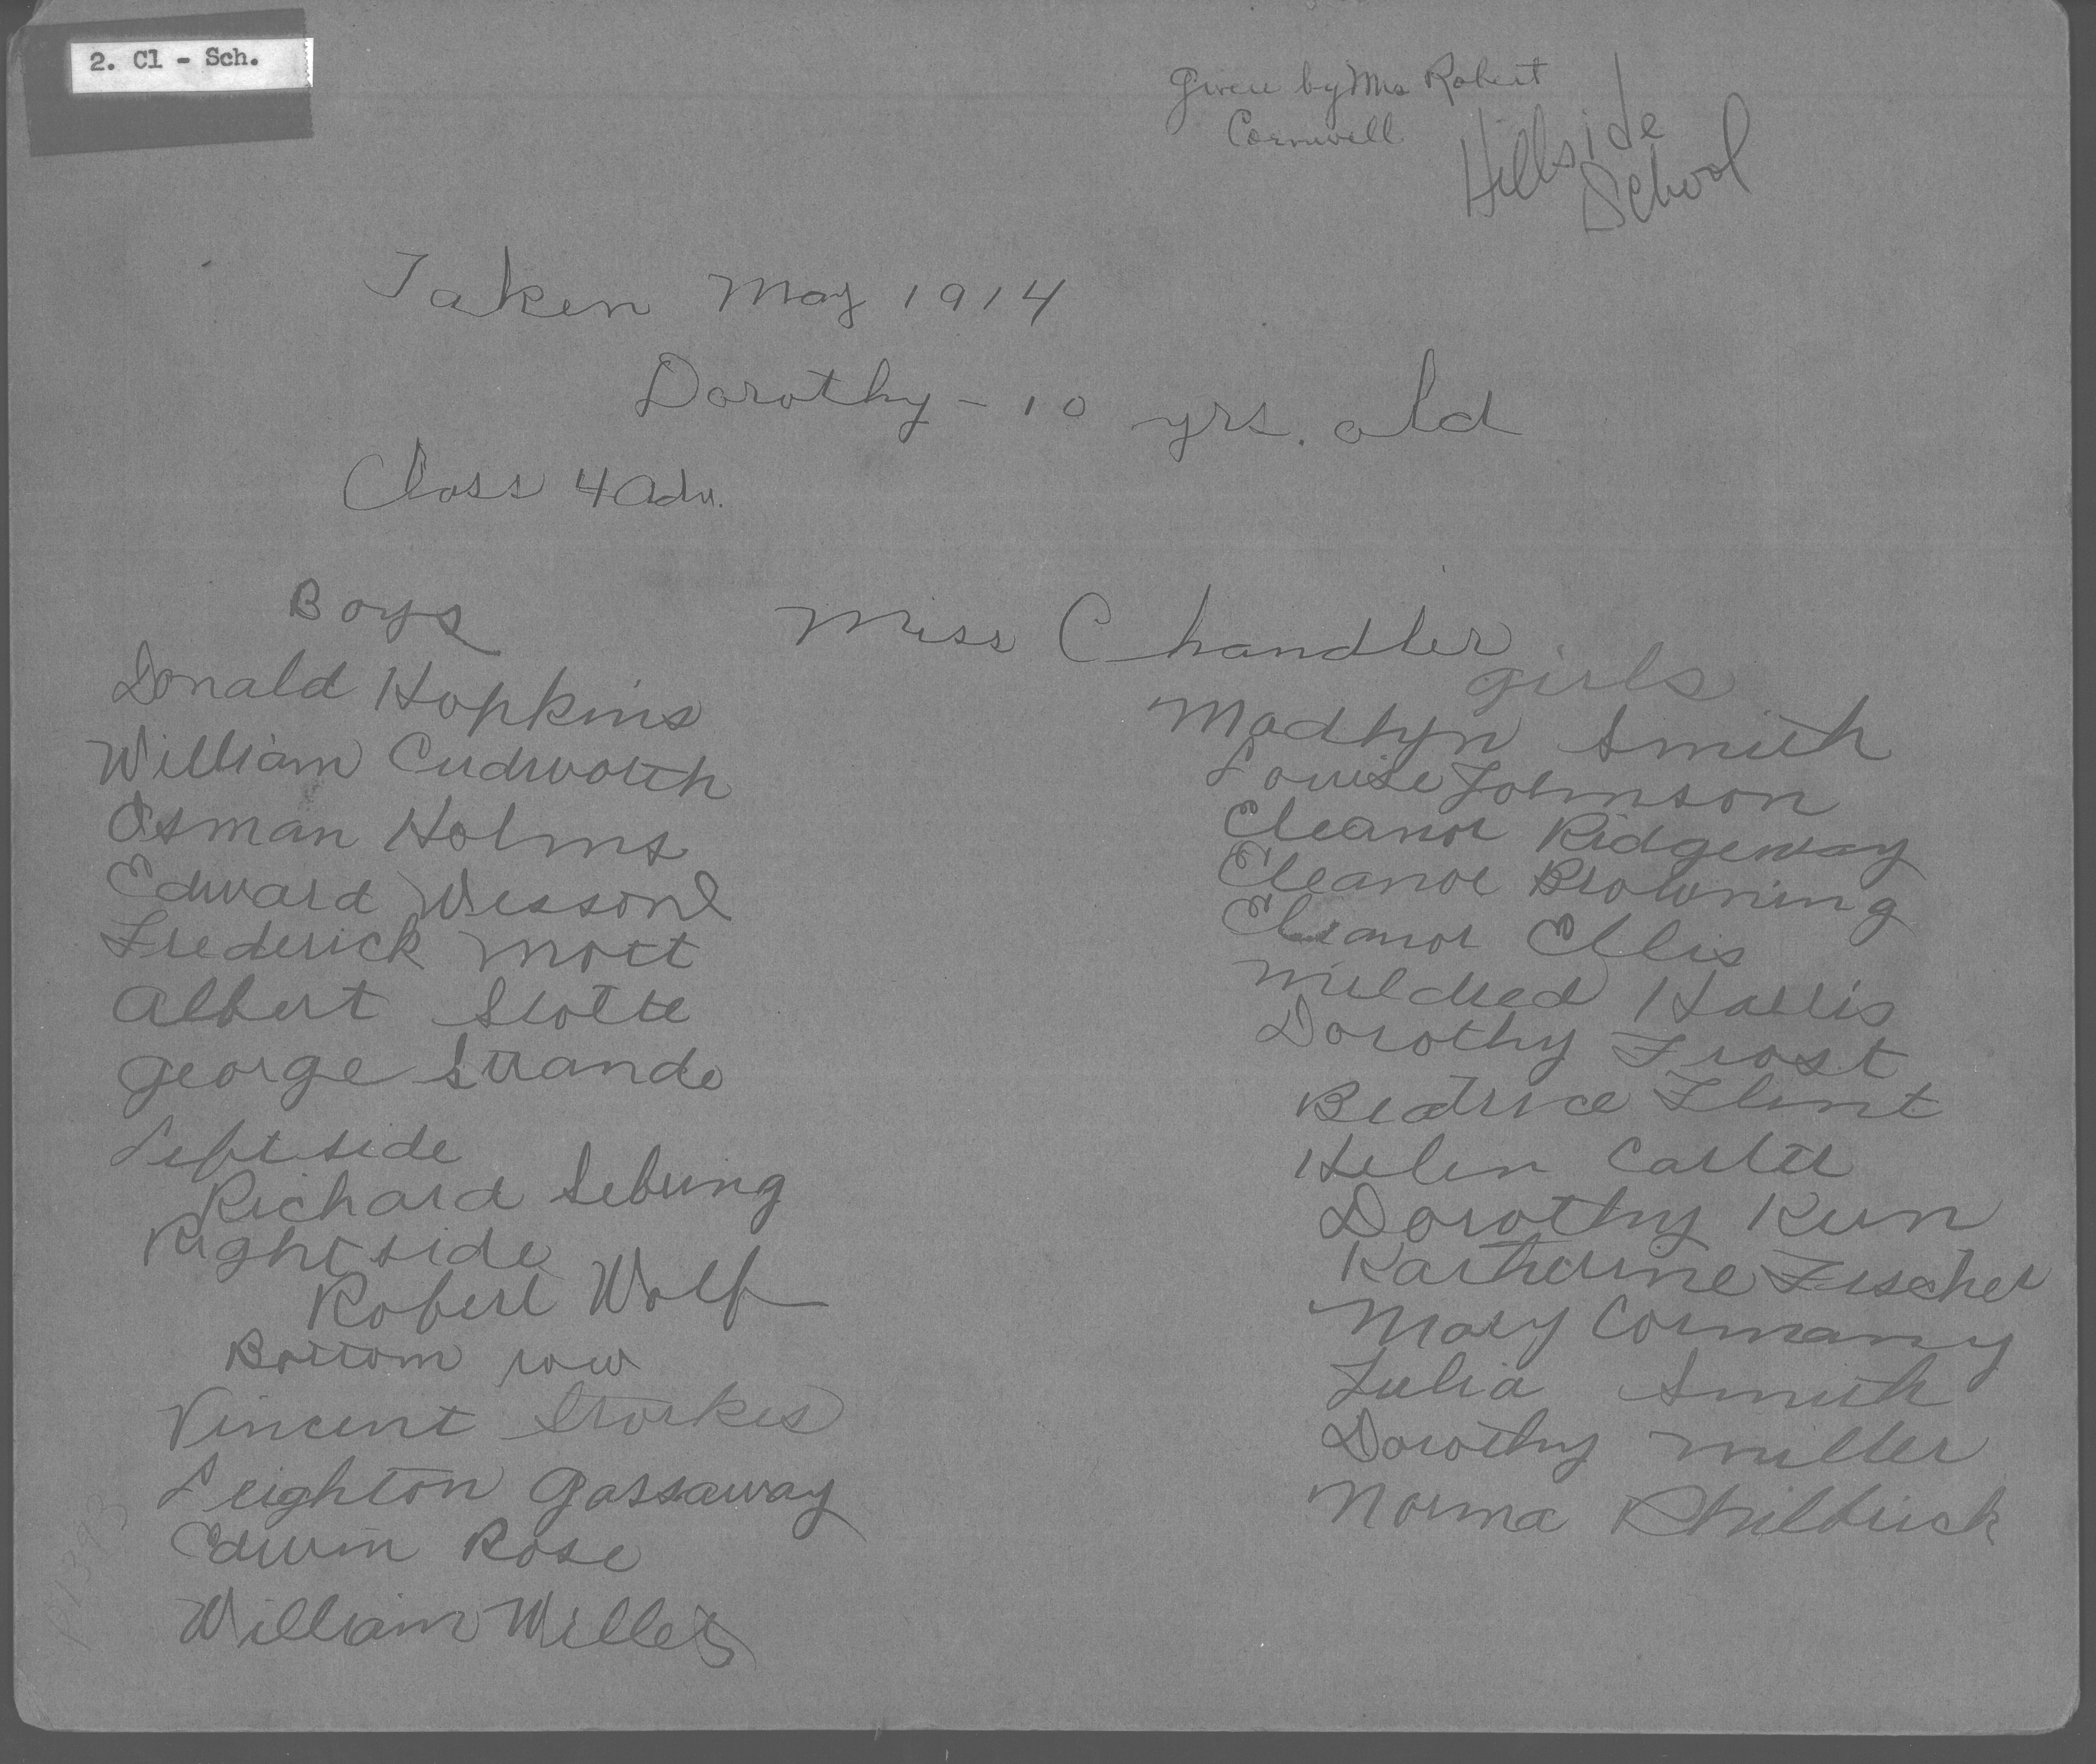 2. Cl - Sch.
Given by Mrs Robert
Cornwell
Hillside
School
Taken May 1914
Dorothy - 10 yrs. old
Class 4 Adv.
Miss Chandler
Boys
Donald Hopkins
William Cudworth
Osman Holms
Edward
Frederick Mott
Albert
George
Left side
Richard Sebring
Right side
Robert Wolf
Bottom row
Vincent Storkes
Leighton Gassaway
Edwin Rose
William Willets
girls
Madlyn Smith
Louise Johnson
Eleanor Ridgeway
Eleanor Browning
Eleanor Ellis
Mildred
Dorothy Frost
Beatrice Flint
Helen Carter
Dorothy
Katherine Fischer
Mary Cormany
Julia Smith
Dorothy Miller
Norma Philbrick